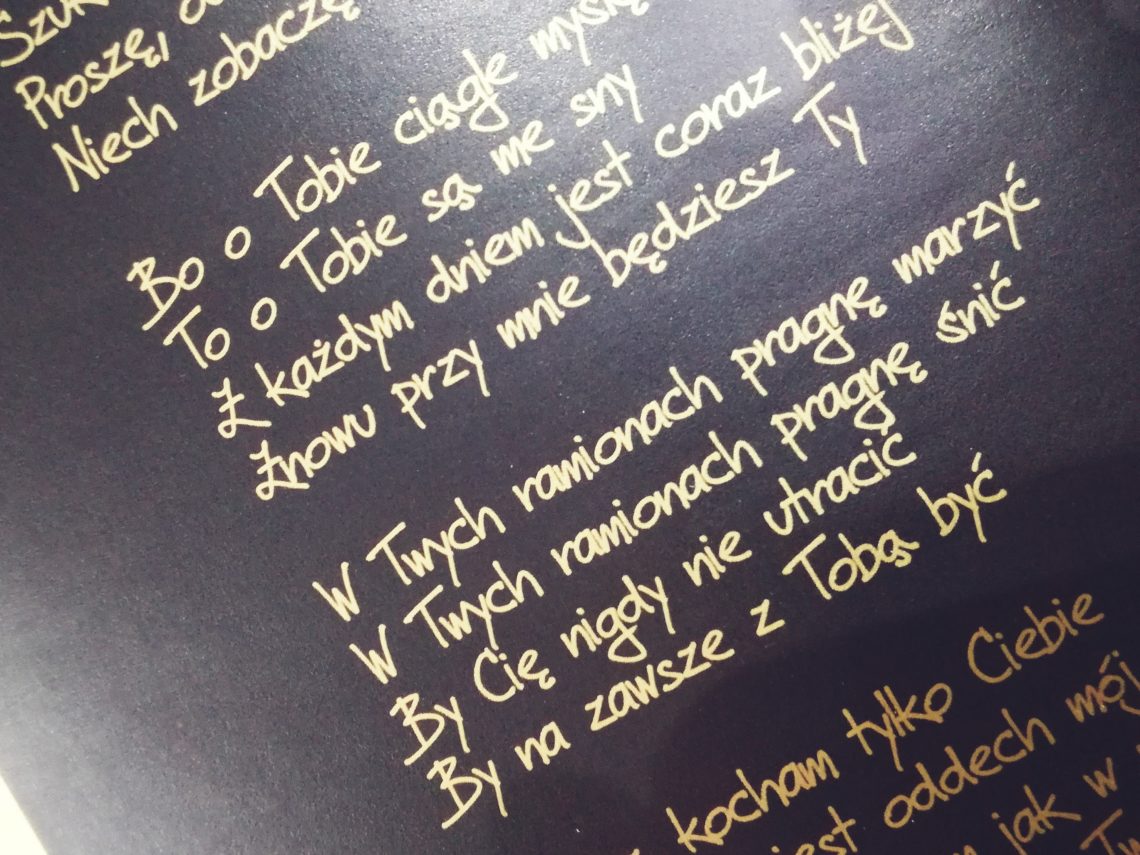 Proszę,
Niech zobaczę
Bo o Tobie ciągle myślę
To o Tobie są me sny
Z każdym dniem jest coraz bliżej
Znowu przy mnie będziesz Ty
W Twych ramionach pragnę marzyć
W Twych ramionach pragnę śnić
By Cię nigdy nie utracić
By na zawsze z Tobą być
kocham tylko Ciebie
oddech mój
jak w